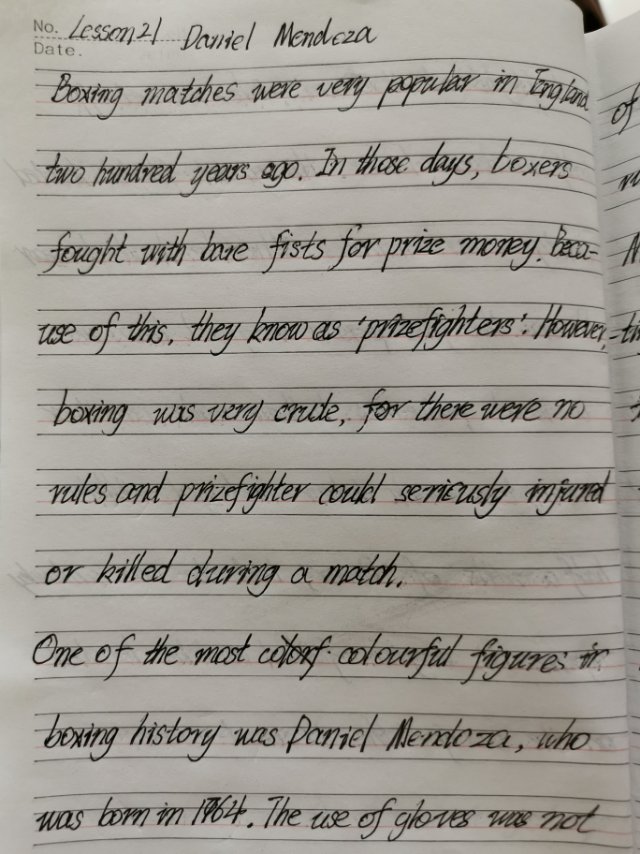 No. Lesson 21 Daniel Mendoza
Date.
Boxing matches were very popular in England
two hundred years ago. In those days, boxers
fought with bare fists for prize money. Beca-
use of this, they know as 'prizefighters'. However,
boxing was very crude, for there were no
rules and prizefighter could seriously injured
or killed during a match.
One of the most colourful figures in
boxing history was Daniel Mendoza, who
was born in 1764. The use of gloves was not
of